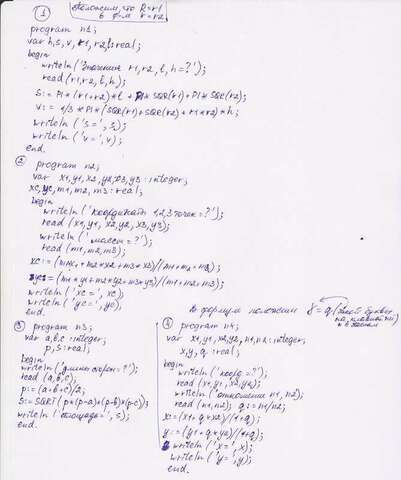 ① Положим, что R=r1
в ф-м r=r2
program n1;
var h,s,v,r1,r2,l:real;
begin
writeln('Значения r1,r2,l,h=?');
read(r1,r2,l,h);
S:=PI*(r1+r2)*l+PI*SQR(r1)+PI*SQR(r2);
V:=1/3*PI*(SQR(r1)+SQR(r2)+r1*r2)*h;
writeln('s=',s);
writeln('v=',v);
end.
② program n2;
var x1,y1,x2,y2,x3,y3:integer;
xc,yc,m1,m2,m3:real;
begin
writeln('координаты 1,2,3 точек=?');
read(x1,y1,x2,y2,x3,y3);
writeln('массы=?');
read(m1,m2,m3);
xc:=(m1*x1+m2*x2+m3*x3)/(m1+m2+m3);
yc:=(m1*y1+m2*y2+m3*y3)/(m1+m2+m3);
writeln('xc=',xc);
writeln('yc=',yc);
end.
③ program n3;
var a,b,c:integer;
p,S:real;
begin
writeln('длины сторон=?');
read(a,b,c);
p:=(a+b+c)/2;
S:=SQRT(p*(p-a)*(p-b)*(p-c));
writeln('площадь=',s);
end.
В формуле положим γ=q (такой буквы
на клавиатуре
④ program n4;
var x1,y1,x2,y2,n1,n2:integer;
x,y,q:real;
begin
writeln('коорд=?');
read(x1,y1,x2,y2);
writeln('отношение n1,n2');
read(n1,n2); q:=n1/n2;
x:=(x1+q*x2)/(1+q);
y:=(y1+q*y2)/(1+q);
writeln('x=',x);
writeln('y=',y);
end.